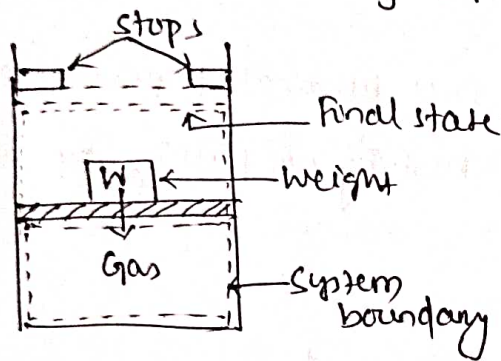 Stops
Final state
W
Weight
Gas
System
boundary